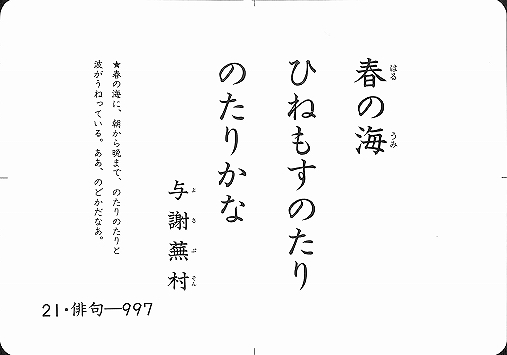 春の海
はる
うみ
ひねもすのたり
のたりかな
与謝蕪村
よさぶそん
★春の海に、朝から晩まで、のたりのたりと
波がうねっている。ああ、のどかだなあ。
21・俳句―997